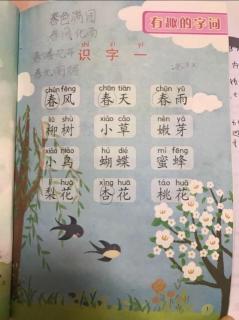 有趣的字词
春色满园
shí zì yī
识字一
chūn fēng chūn tiān chūn yǔ
春风 春天 春雨
liǔ shù xiǎo cǎo nèn yá
柳树 小草 嫩芽
xiǎo niǎo hú dié mì fēng
小鸟 蝴蝶 蜜蜂
lí huā xìng huā táo huā
梨花 杏花 桃花
1